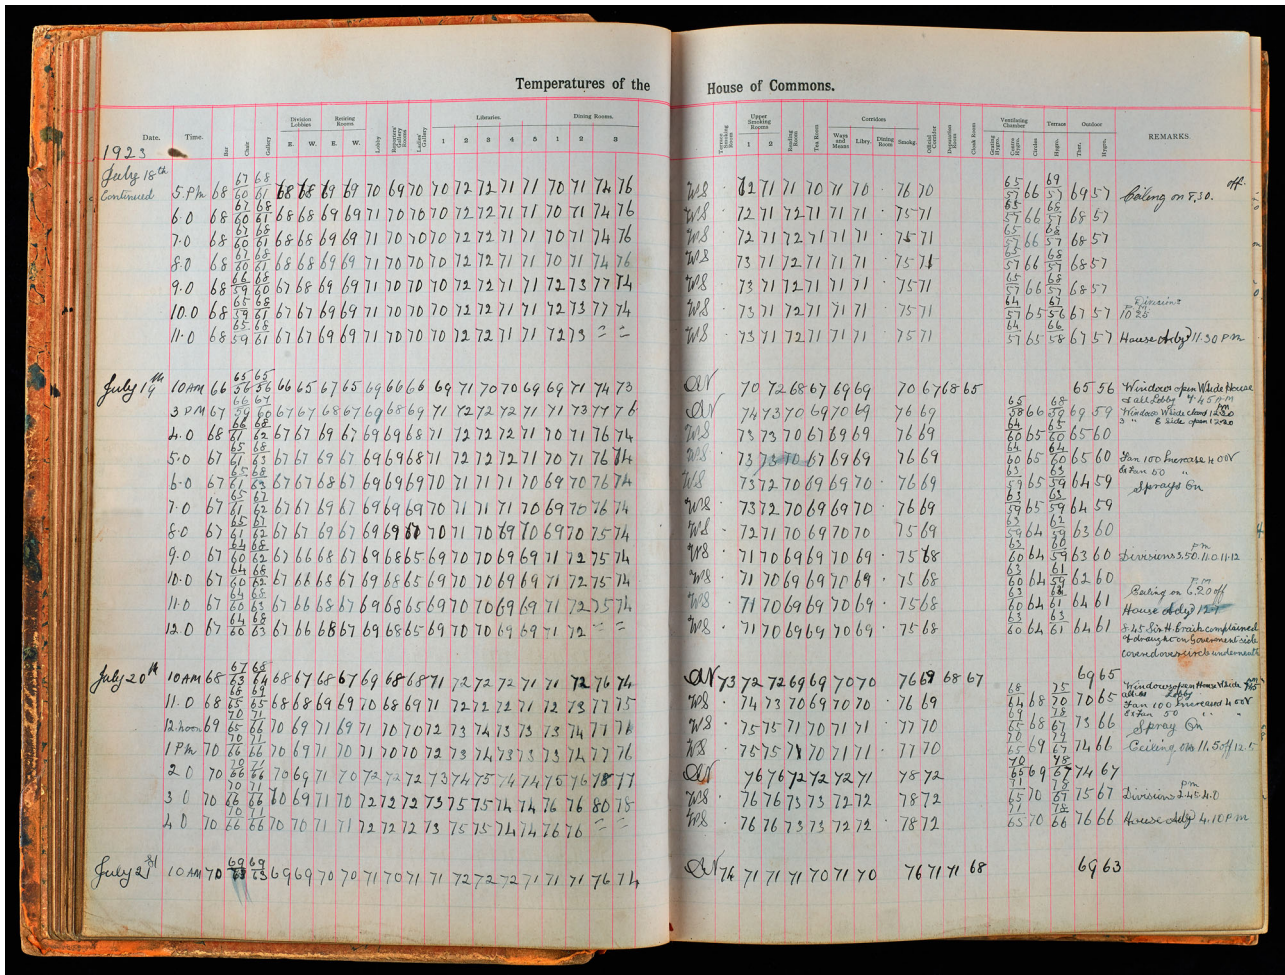 Temperatures of the House of Commons.
Date. Time. Bar Chair Gallery Division Lobbies E. W. Retiring Rooms E. W. Lobby Reporters' Gallery Room Ladies' Gallery Libraries. 1 2 3 4 5 Dining Rooms. 1 2 3
Terrace Smoking Room Upper Smoking Rooms 1 2 Reading Room Tea Room Corridors Ways and Means Libry. Dining Room Smokg. Official Corridor Deputation Room Cloak Room Ventilating Chamber Grating Hygro. Centre Hygro. Terrace Hygro. Outdoor Ther. Hygro. REMARKS
1923
July 18th Continued
5.PM 68 67/60 68/61 68 68 69 69 70 69 70 70 72 72 71 71 70 71 74 76 WS 71 71 70 71 70 76 70 65/57 66 69/57 69 57 Ceiling on 8.30. off.
6.0 68 67/60 68/61 68 68 69 69 71 70 70 70 72 72 71 71 70 71 74 76 WS 72 71 72 71 71 71 75 71 65/57 66 68/57 68 57
7.0 68 67/60 68/61 68 68 69 69 71 70 70 70 72 72 71 71 70 71 74 76 WS 72 71 72 71 71 71 75 71 65/57 66 68/57 68 57
8.0 68 67/60 68/61 68 68 69 69 71 70 70 70 72 71 71 71 70 71 74 76 WS 73 71 72 71 71 71 75 71 65/57 66 68/57 68 57
9.0 68 66/59 68/60 67 68 69 69 71 70 70 70 71 71 71 71 72 73 77 74 WS 73 71 72 71 71 71 75 71 65/57 66 68/57 68 57
10.0 68 65/59 68/61 67 67 69 69 71 70 70 70 72 71 71 71 72 73 77 74 WS 73 71 72 71 71 71 75 71 64/57 65 67/56 67 57 Divisions PM 10.25
11.0 68 65/59 68/61 67 67 69 69 71 70 70 70 72 72 71 71 72 73 = = WS 73 71 72 71 71 71 75 71 64/57 65 66/58 67 57 House Adjd 11.30 PM
July 19th
10AM 66 65/56 65/56 66 65 67 65 69 66 66 69 71 70 70 69 69 71 74 73 70 72 68 67 69 69 70 67 68 65 65 56 Windows open W side House
& all Lobby 7.45 AM
3 PM 67 66/59 67/60 67 67 68 67 69 68 69 71 72 72 72 71 71 73 77 76 74 73 70 69 70 69 76 69 65/58 66 68/59 69 59 Windows W side closed 12.30 PM
3 " E side open 12.30
4.0 68 66/61 68/62 67 67 69 67 69 69 68 71 72 72 72 71 70 71 76 74 WS 73 73 70 67 69 69 76 69 64/60 65 65/60 65 60
5.0 67 65/61 68/63 67 67 69 67 69 69 68 71 72 72 72 71 70 71 76 74 WS 73 73 70 67 69 69 76 69 64/60 65 64/60 65 60 Fan 100 Increase 4 00V
Ex Fan 50 "
6.0 67 65/61 68/63 67 67 68 67 69 69 69 70 71 71 71 70 69 70 76 74 WS 73 72 70 69 69 70 76 69 63/59 65 63/59 64 59 Sprays On
7.0 67 65/61 67/62 67 67 69 67 69 69 69 70 71 71 71 70 69 70 76 74 WS 73 72 70 69 69 70 76 69 63/59 65 63/59 64 59
8.0 67 65/61 67/62 67 67 69 67 69 69 70 71 70 69 70 69 70 75 74 WS 72 71 70 69 70 70 75 69 63/59 64 62/60 63 60
9.0 67 64/60 68/62 67 66 68 67 69 68 65 69 70 70 69 69 71 72 75 74 WS 71 70 69 69 70 69 75 68 63/60 64 60/59 63 60 Divisions 3.50. 11.0 11.12 pm
10.0 67 64/60 68/62 67 66 68 67 69 68 65 69 70 70 69 69 71 72 75 74 WS 71 70 69 69 70 69 75 68 63/60 64 61/59 62 60
11.0 67 64/60 68/63 67 66 68 67 69 68 65 69 70 70 69 69 71 72 75 74 WS 71 70 69 69 70 69 75 68 63/60 64 61 64 61 Ceiling on 6.20 off P.M
House Adjd
12.0 67 64/60 68/63 67 66 68 67 69 68 65 69 70 70 69 69 71 72 = = WS 71 70 69 69 70 69 75 68 63/60 64 63/61 64 61 8.45 Sir H. complained
of draught on Government side
covered over urcls underneath
July 20th
10AM 68 67/63 68/64 68 67 68 67 69 68 68 71 72 72 72 71 71 72 76 74 73 72 72 69 69 70 70 76 69 68 67 69 65 Windows open House W side
all Lobby
11.0 68 68/65 69/65 68 68 69 69 70 69 68 71 72 72 72 71 72 73 77 75 WS 74 73 70 69 70 70 76 69 68/64 68 75/70 70 65 Fan 100 Increased 4 00V
Ex Fan 50 " "
12.noon 69 70/65 71/66 70 69 71 69 71 70 70 72 73 74 73 73 73 74 77 WS 75 75 71 70 71 71 77 70 69/65 68 78/67 73 66 Spray On
1 PM 70 70/66 71/66 70 69 71 70 71 70 70 72 73 74 73 73 73 74 77 76 WS 75 75 71 70 71 71 77 70 70/65 69 79/67 74 66 Ceiling on 11.5 off 12.5
2 0 70 70/66 71/66 70 69 71 70 72 72 72 73 74 75 74 74 75 76 78 77 76 76 72 72 72 71 78 72 70/65 69 78/67 74 67
3 0 70 70/66 71/66 70 69 71 70 72 72 72 73 75 75 74 74 76 76 80 78 WS 76 76 73 73 72 72 78 72 71/65 70 78/67 75 67 Divisions 2.45 4.0 pm
4 0 70 70/66 71/66 70 70 71 71 72 72 72 73 75 75 74 74 76 76 = = WS 76 76 73 73 72 72 78 72 71/65 70 78/66 76 66 House Adjd 4.10 PM
July 21st
10AM 70 69/63 69/63 69 69 70 70 71 70 71 71 72 72 72 71 71 71 76 74 74 71 71 71 70 71 70 76 71 71 68 69 63